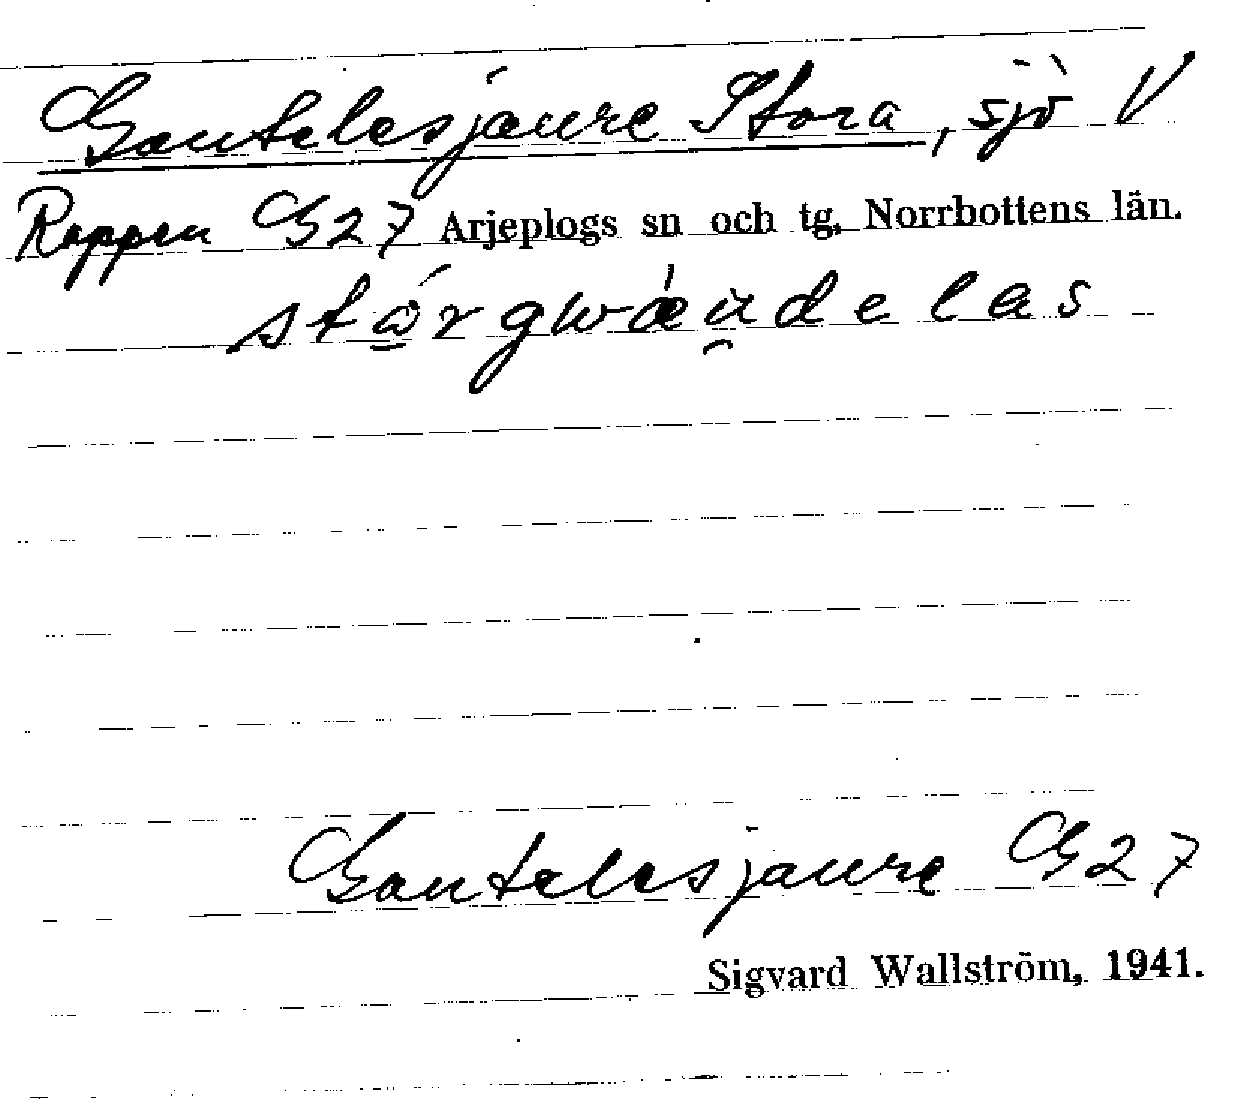 Gautelesjaure Stora, sjö V
Rappen G27 Arjeplogs sn och tg, Norrbottens län.
Gautelesjaure G27
Sigvard Wallström, 1941.